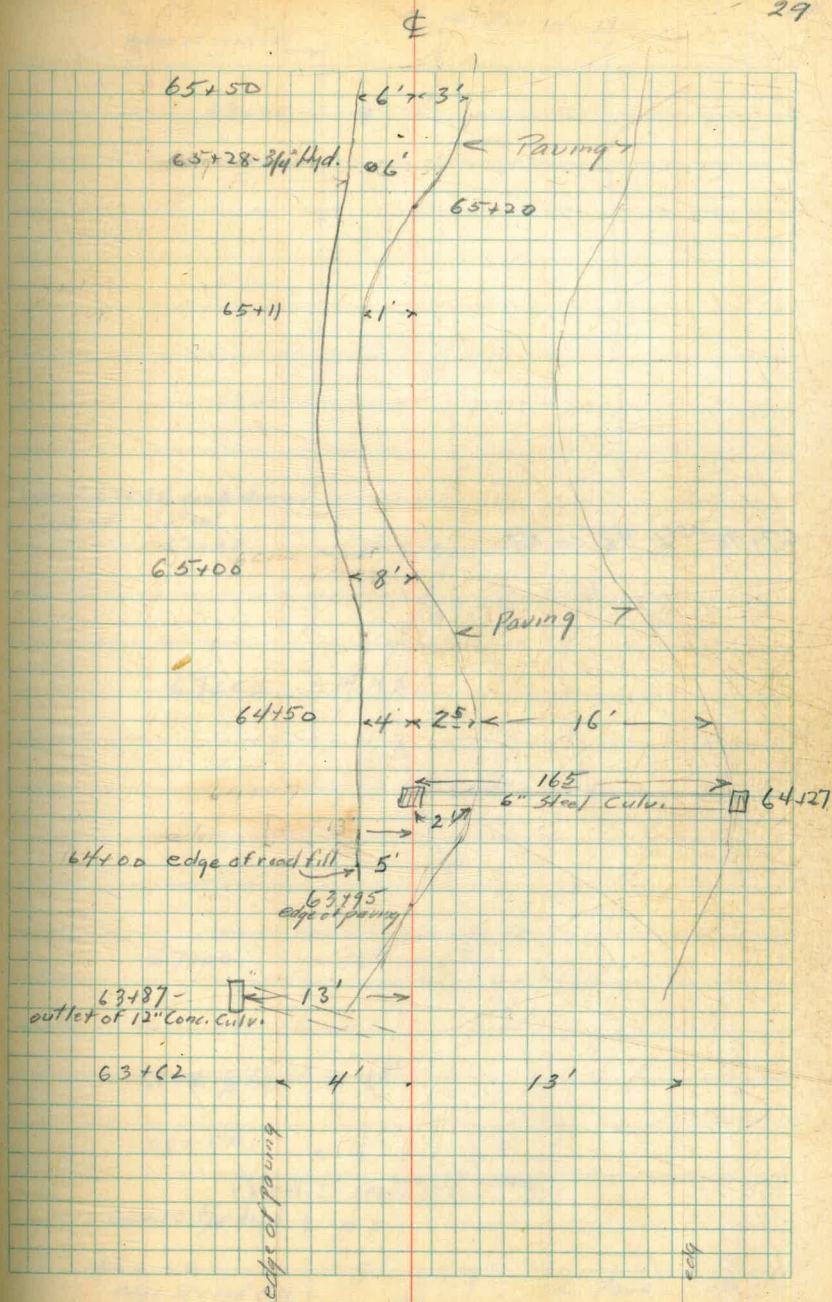 29
℄
65+50 6' 3'
65+28-3/4" Hyd. 6' Paving
65+20
65+11 1'
65+00 8'
Paving
64+50 4 2⁵ 16'
16⁵
6" Steel Culv. 64+27
2'
64+00 edge of road fill 5'
63+95
edge of paving
63+87- 13'
outlet of 12" Conc. Culv.
63+62 4' 13'
edge of paving
edg